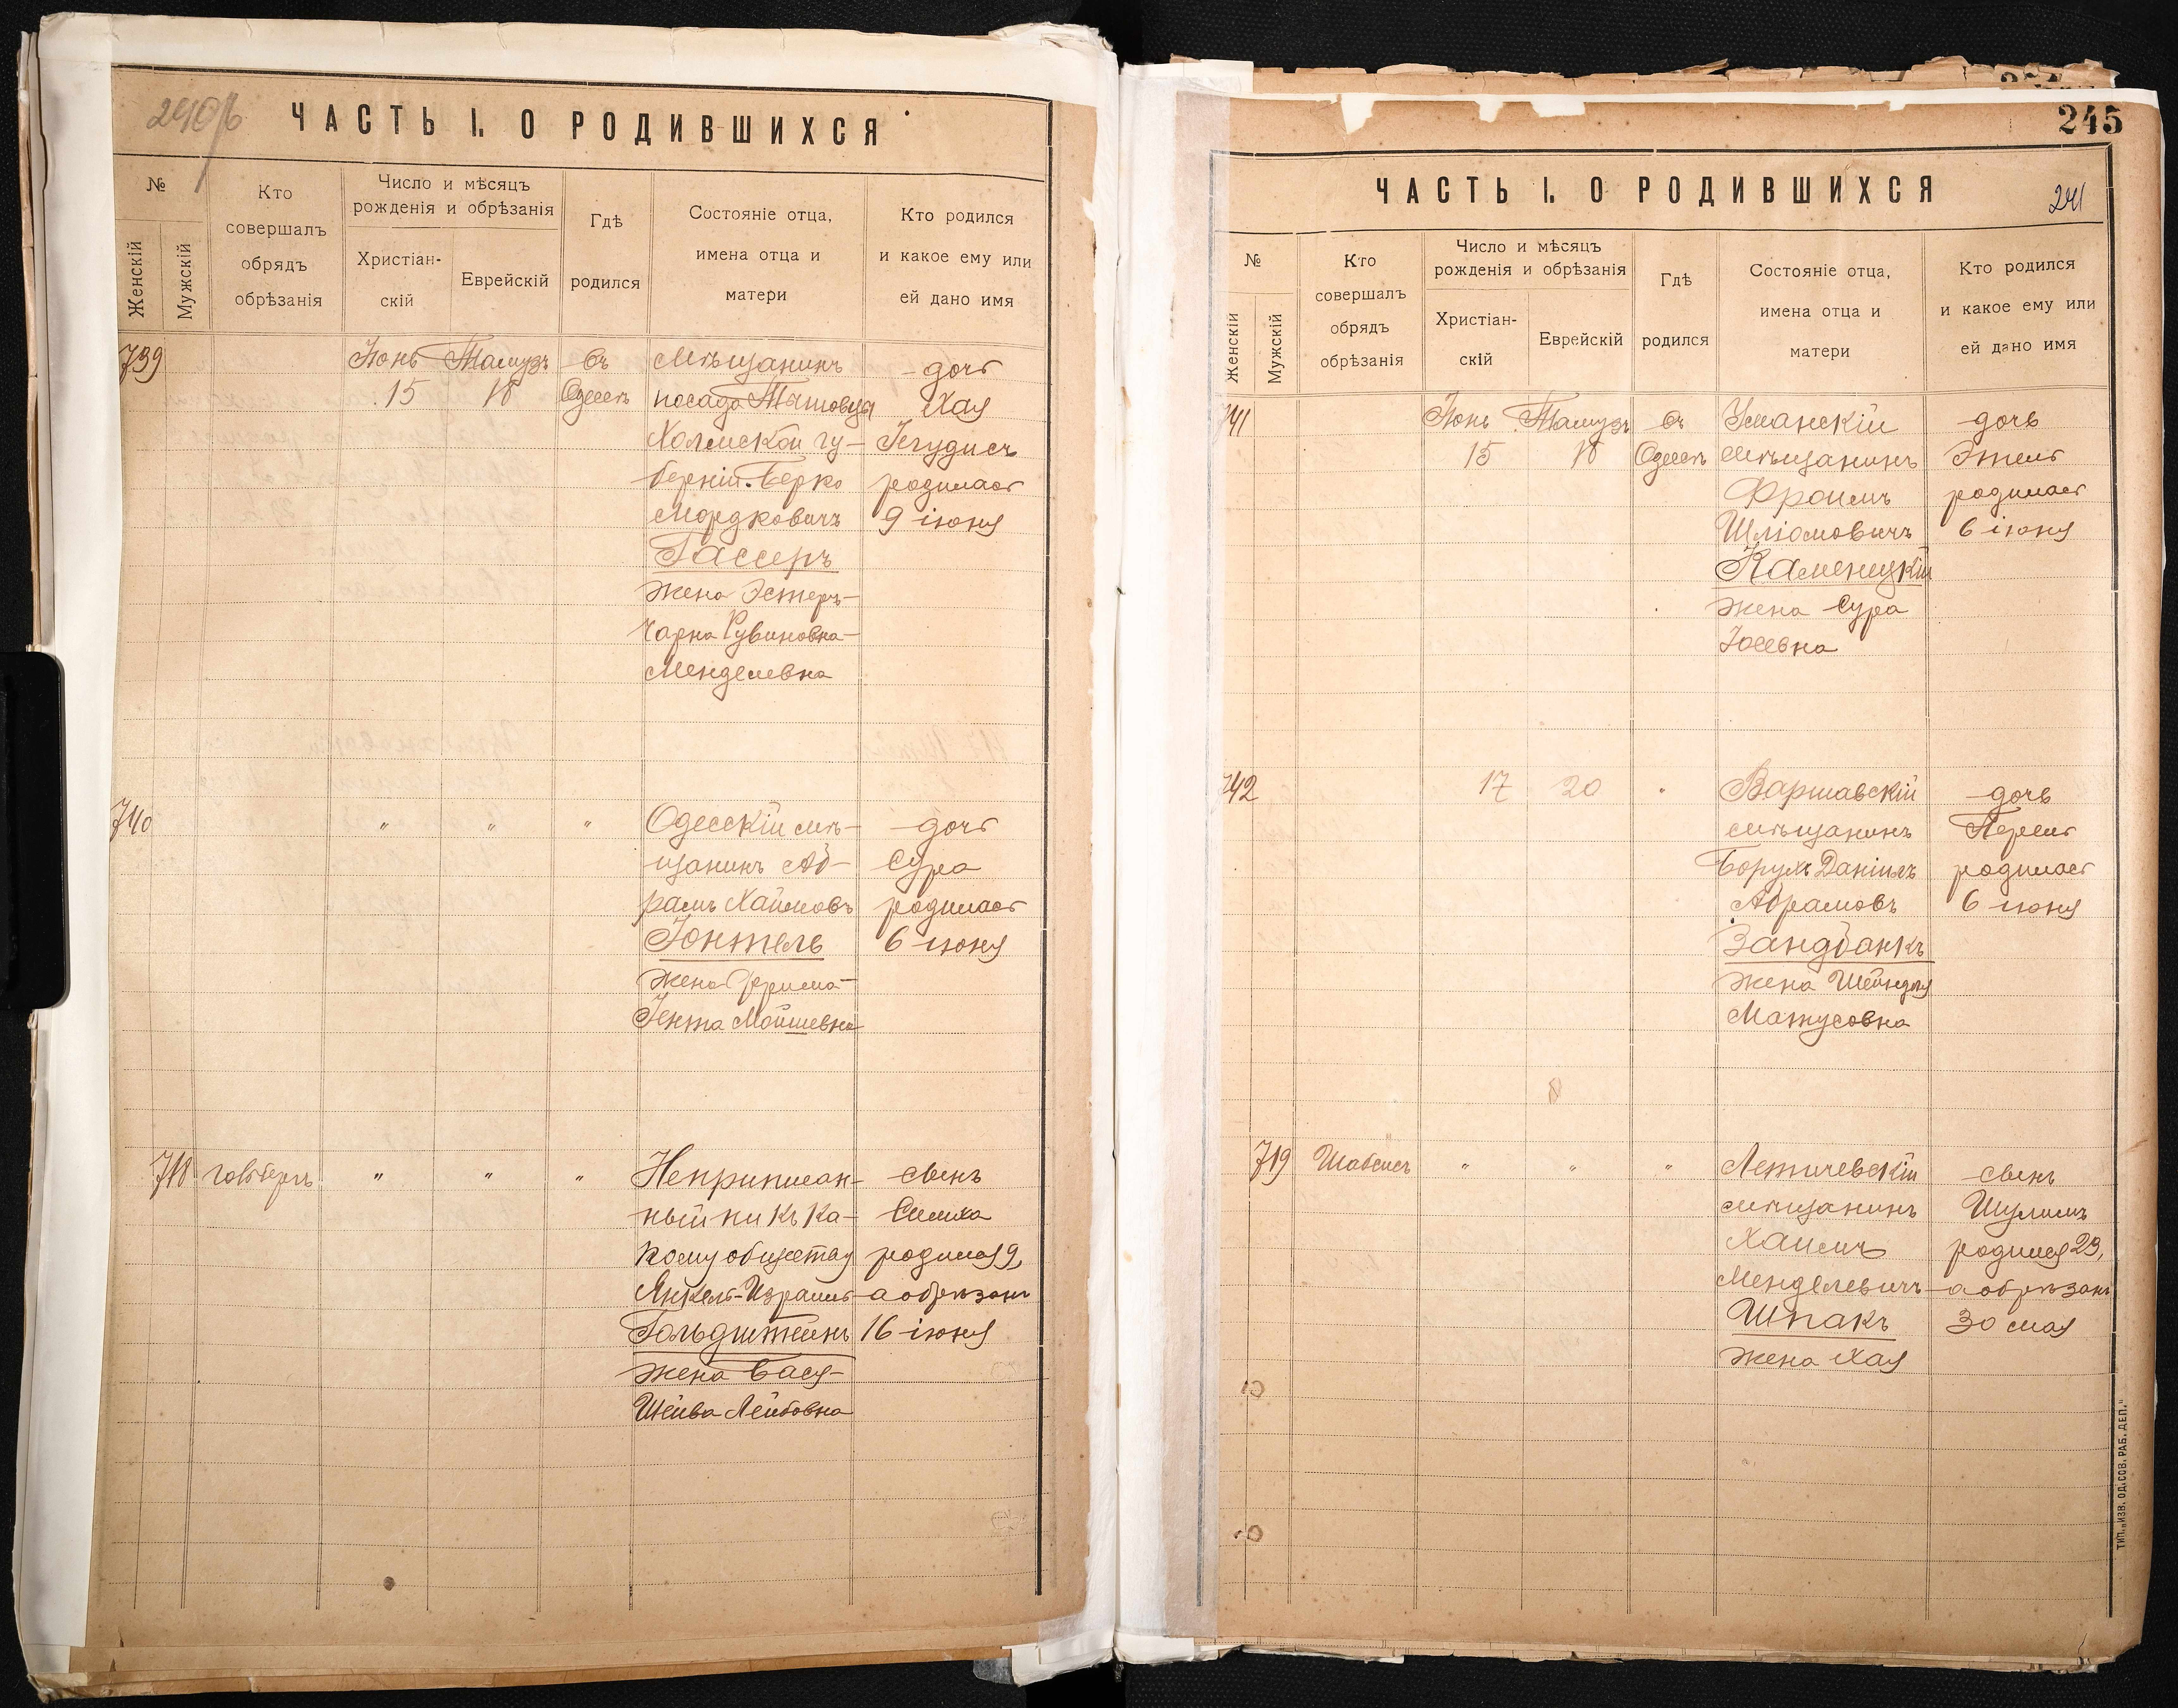 ЧАСТЬ I. О РОДИВШИХСЯ
№
Женскій
Мужскій
Кто
совершалъ
обрядъ
обрѣзанія
Число и мѣсяцъ
рожденія и обрѣзанія
Христіан-
скій
Еврейскій
Гдѣ
родился
Состояніе отца,
имена отца и
матери
Кто родился
и какое ему или
ей дано имя
739 Іюнь Тамузъ въ Мѣщанинъ дочь
15 18 Одессѣ посада Хая
Холмской гу- Іегудисъ
берніи Берко родилась
Мордковичъ 9 іюня
Гассеръ
жена Эстеръ-
Чарна Рувиновна-
Менделевна
740 " " " Одесскій мѣ- дочь
щанинъ Аб- Сура
рамъ Хаимовъ родилась
Іонтель 6 іюня
жена Фрима-
Іента Мойшевна
718 Гольбергъ " " " Неприписан- сынъ
ный ни къ ка- Симха
кому обществу родился 9,
Янкель-Израиль а обрѣзанъ
Гольдштейнъ 16 іюня
жена Бася-
Шейва Лейбовна
245
ЧАСТЬ I. О РОДИВШИХСЯ
241
№
Женскій
Мужскій
Кто
совершалъ
обрядъ
обрѣзанія
Число и мѣсяцъ
рожденія и обрѣзанія
Христіан-
скій
Еврейскій
Гдѣ
родился
Состояніе отца,
имена отца и
матери
Кто родился
и какое ему или
ей дано имя
741 Іюнь Тамузъ въ Уманскій дочь
15 18 Одессѣ мѣщанинъ Этель
Фроимъ родилась
Шліомовичъ 6 іюня
Каменецкій
жена Сура
Іосевна
742 17 20 " Варшавскій дочь
мѣщанинъ Перель
Борухъ Даніель родилась
Абрамовъ 6 іюня
Зандбанкъ
жена Шейндля
Матусовна
719 Шабсисъ " " " Летичевскій сынъ
мѣщанинъ Шулимъ
Хаимъ родился 23,
Менделевичъ а обрѣзанъ
Шпакъ 30 мая
жена Хая
ТИП. „ИЗВ. ОД. СОВ. РАБ. ДЕП."